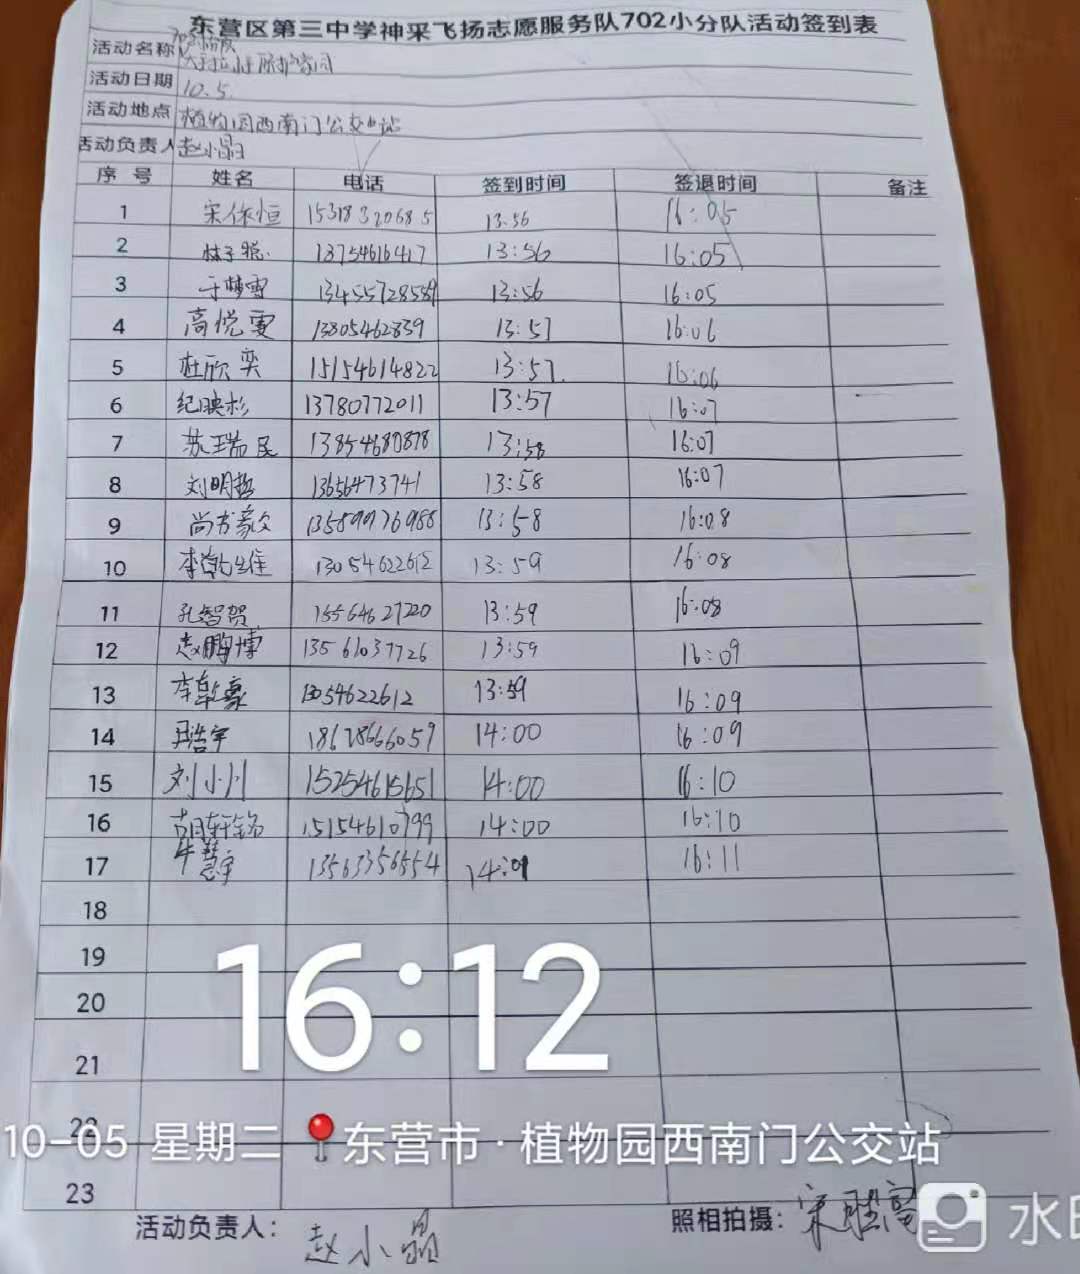 东营区第三中学神采飞扬志愿服务队702小分队活动签到表
活动名称 702小分队
大手拉小手 保护家园
活动日期 10.5.
活动地点 植物园西南门公交站
活动负责人 赵小晶
序号 姓名 电话 签到时间 签退时间 备注
1 宋保恒 15318320685 13:56 16:05
2 林子悦 13754616417 13:56 16:05
3 于梦雪 13455728559 13:56 16:05
4 高悦雯 13805462839 13:57 16:06
5 杜欣奕 15154614822 13:57 16:06
6 纪映杉 13780772011 13:57 16:07
7 苏瑞民 13854680878 13:58 16:07
8 刘明哲 13656473741 13:58 16:07
9 尚书豪 13589976988 13:58 16:08
10 李乾维 13054622612 13:59 16:08
11 孔智贺 15564627220 13:59 16:08
12 赵鹏博 13561037726 13:59 16:09
13 李乾豪 13054622612 13:59 16:09
14 吕浩宇 18678666059 14:00 16:09
15 刘小川 15254615651 14:00 16:10
16 胡轩铭 15154610799 14:00 16:10
17 牛慧宇 13563356554 14:01 16:11
18
19
20
16:12
21
22
10-05 星期二 东营市·植物园西南门公交站
23
活动负责人: 赵小晶 照相拍摄: 宋
水印